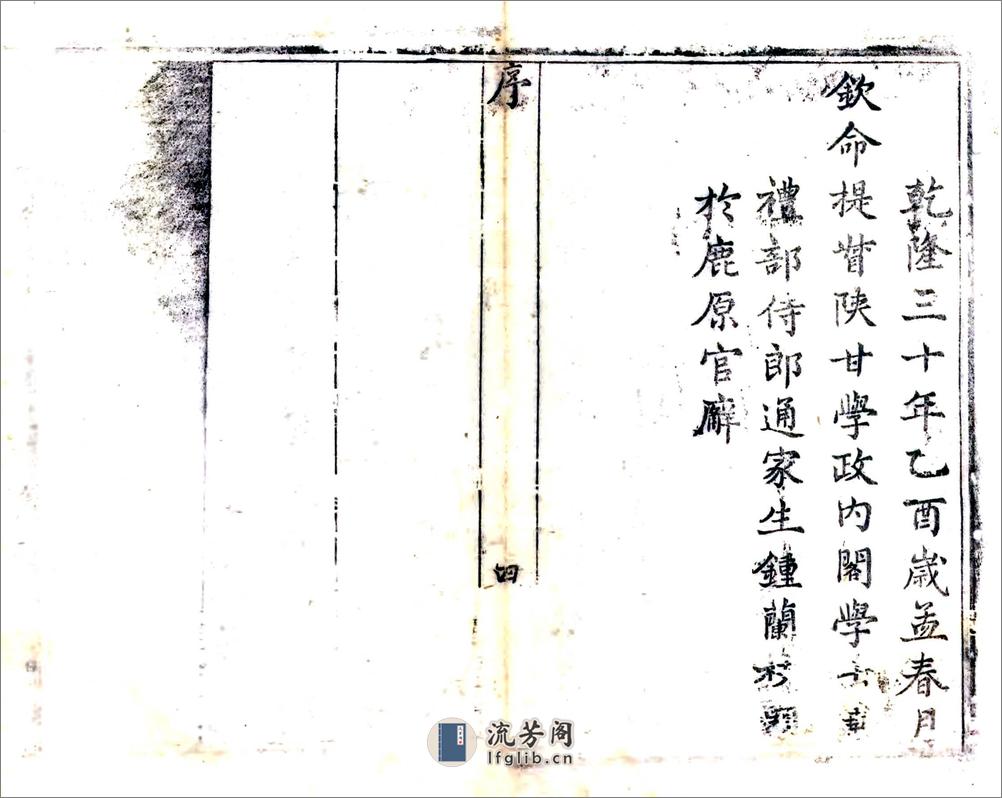 乾隆三十年乙酉歲孟春月
欽命提督陝甘學政內閣學士
禮部侍郎通家生鍾蘭
於鹿原官廨
序
四
流芳阁
lfglib.cn